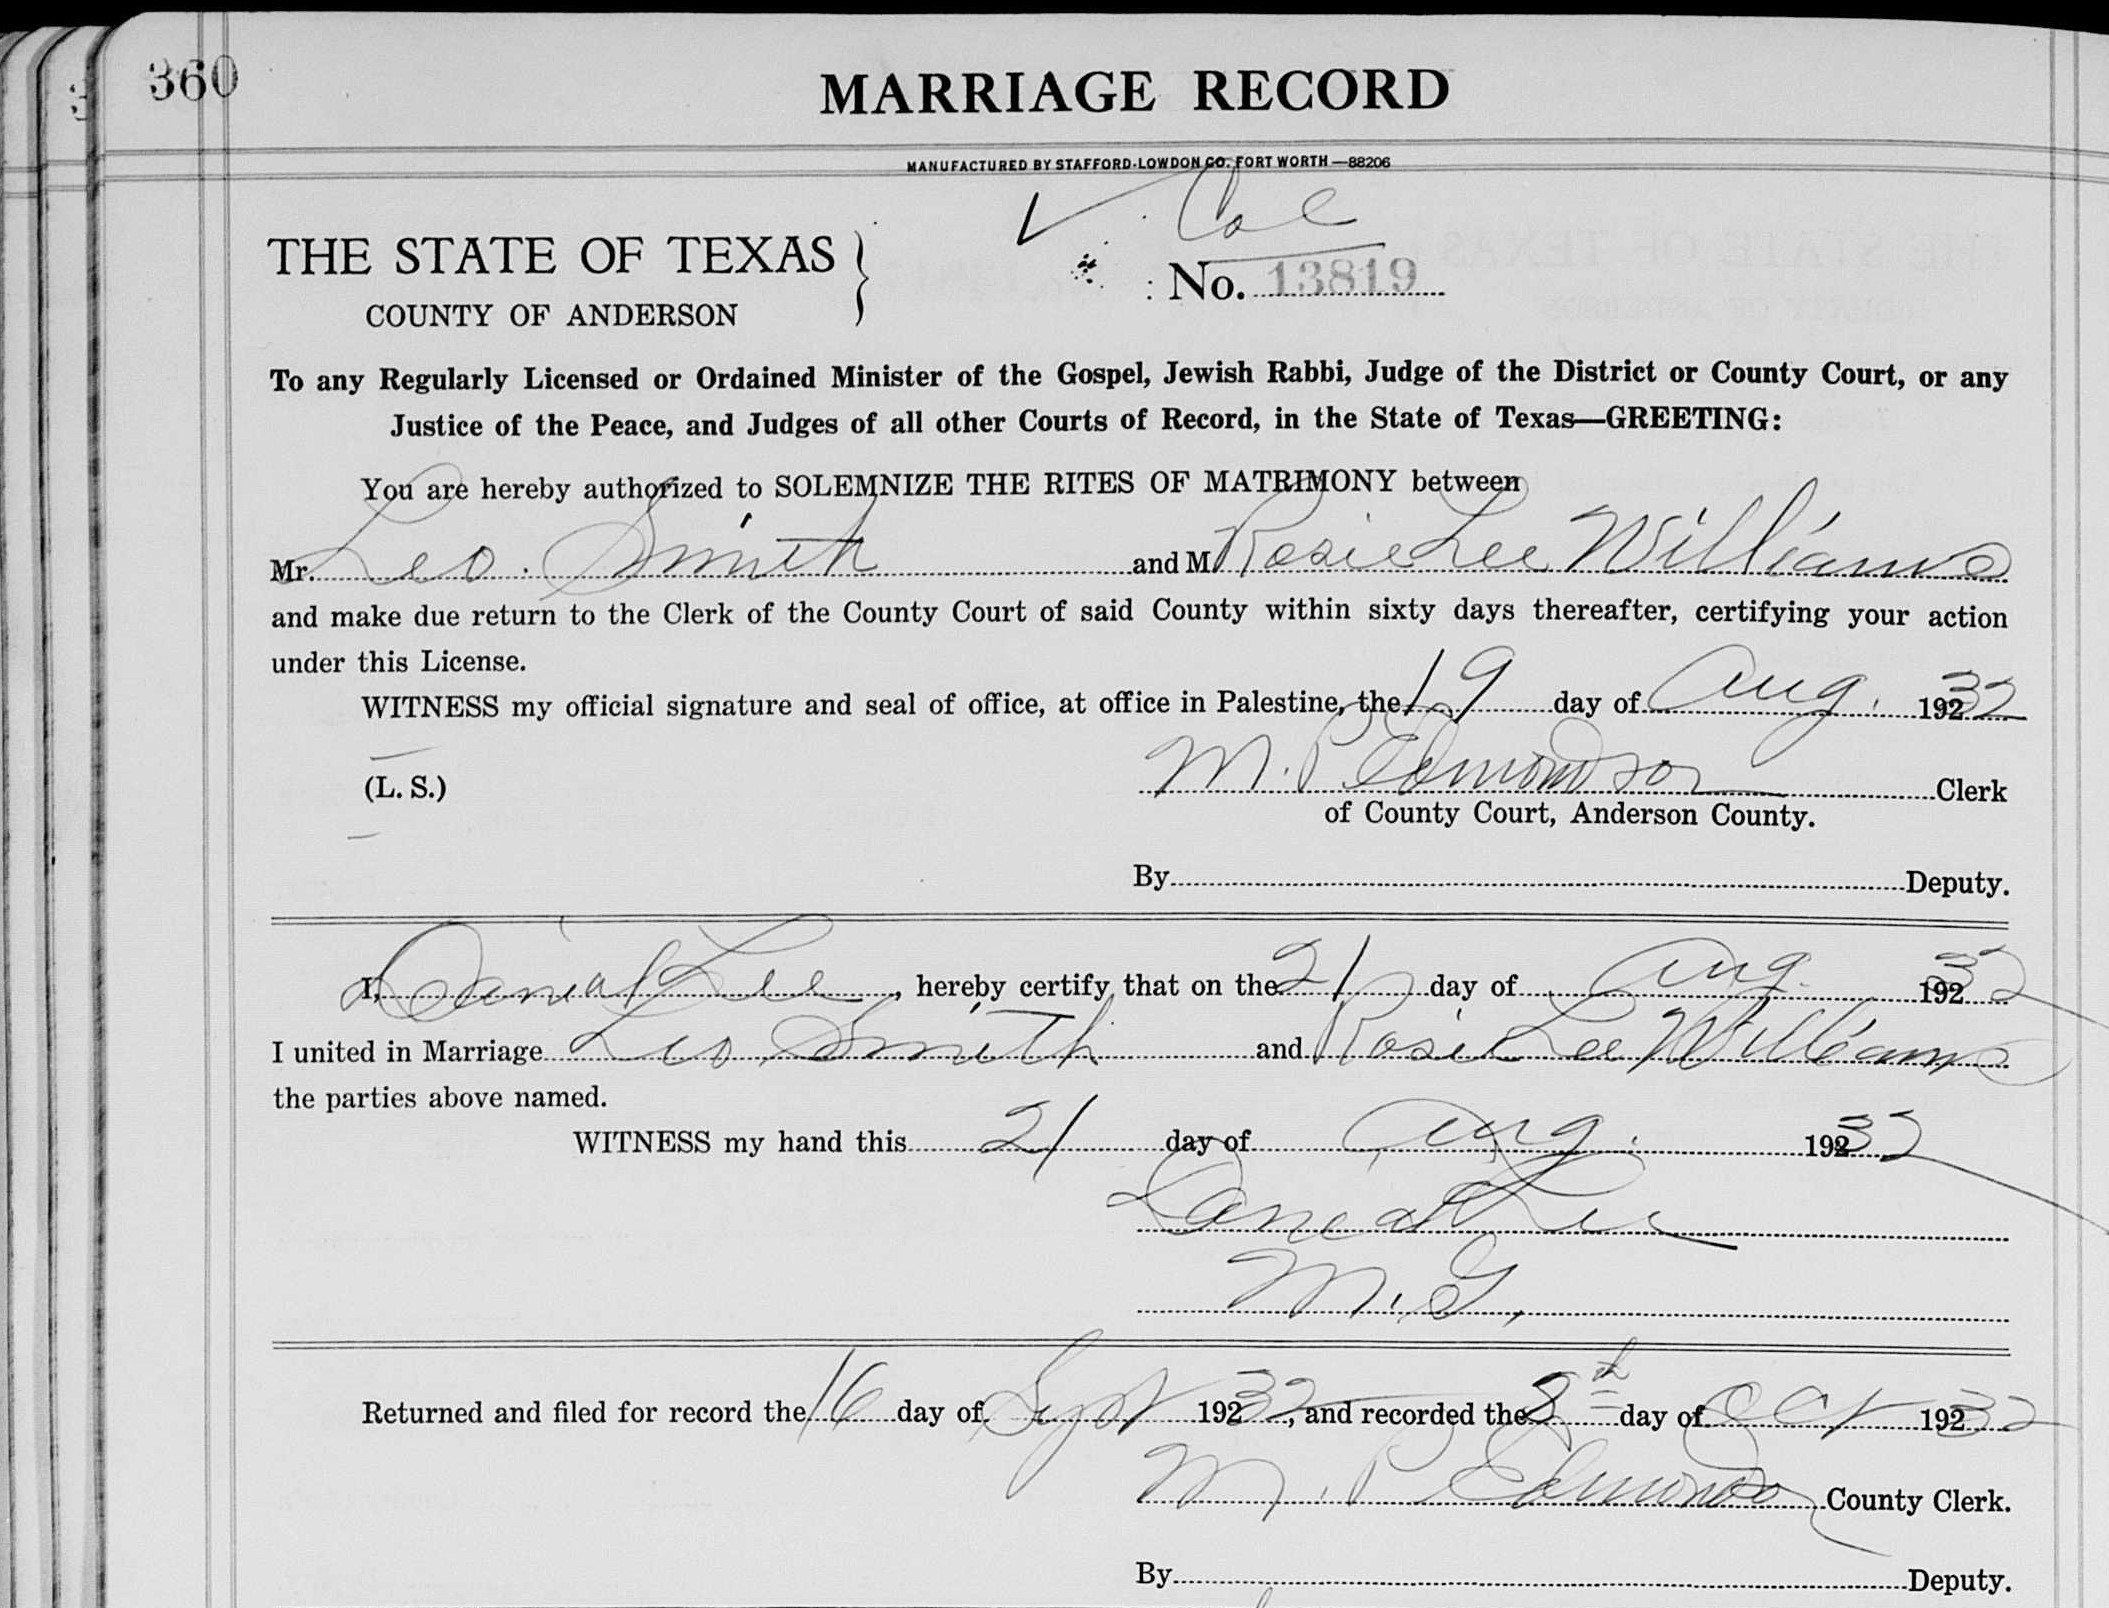 360
MARRIAGE RECORD
MANUFACTURED BY STAFFORD-LOWDON CO. FORT WORTH—88206
Col
THE STATE OF TEXAS }
No. 13819
COUNTY OF ANDERSON
To any Regularly Licensed or Ordained Minister of the Gospel, Jewish Rabbi, Judge of the District or County Court, or any
Justice of the Peace, and Judges of all other Courts of Record, in the State of Texas—GREETING:
You are hereby authorized to SOLEMNIZE THE RITES OF MATRIMONY between
Mr. Leo Smith and M Rosie Lee Williams
and make due return to the Clerk of the County Court of said County within sixty days thereafter, certifying your action
under this License.
WITNESS my official signature and seal of office, at office in Palestine, the 19 day of Aug. 1932
(L. S.) M. P. Edmondson Clerk
of County Court, Anderson County.
By Deputy.
I, Danial Lee, hereby certify that on the 21 day of Aug. 1932
I united in Marriage Leo Smith and Rosie Lee Williams
the parties above named.
WITNESS my hand this 21 day of Aug. 1932
Danial Lee
M. G.
Returned and filed for record the 16 day of Sept 1932, and recorded the 8th day of Oct 1932
M. P. Edmondson County Clerk.
By Deputy.